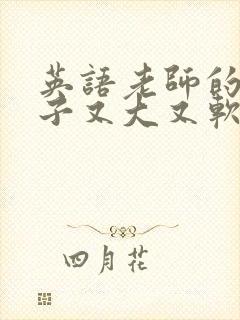 英語老師的
子又大又軟
四月花